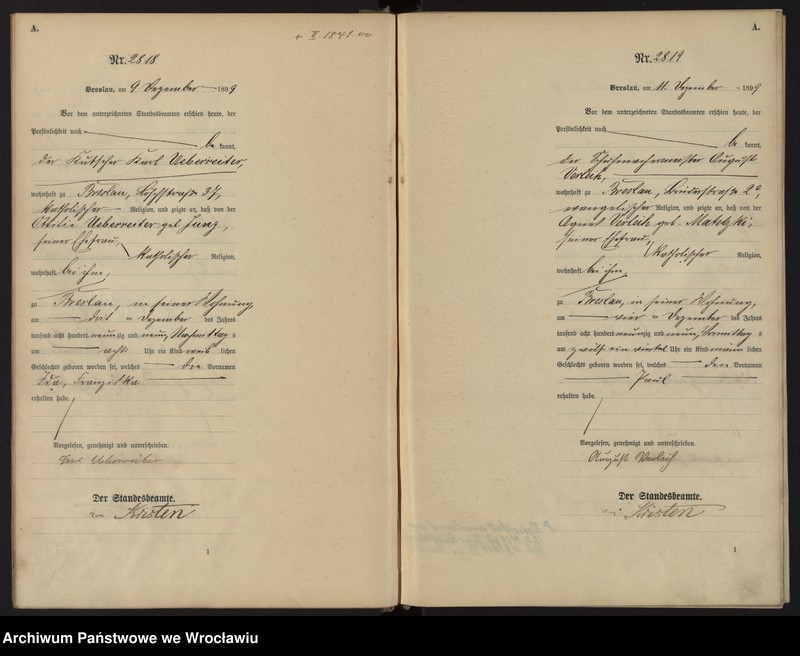 A.
+ II. 1841.00
Nr. 2818
Breslau, am 9 Dezember 1899
Vor dem unterzeichneten Standesbeamten erschien heute, der
Persönlichkeit nach
be kannt,
der Kutscher Karl Ueberreiter,
wohnhaft zu Breslau, 37,
katholischer Religion, und zeigte an, daß von der
Ottilie Ueberreiter geb. Jung,
seiner Ehefrau,
katholischer Religion,
wohnhaft bei ihm,
zu Breslau, in seiner Wohnung,
am drit = Dezember des Jahres
tausend acht hundert neun zig und neun, Nachmittag s
um acht Uhr ein Kind weib lichen
Geschlechts geboren worden sei, welches die Vornamen
Ida, Franziska
erhalten habe.
Vorgelesen, genehmigt und unterschrieben.
Karl Ueberreiter
Der Standesbeamte.
Kirsten
1
A.
Nr. 2819
Breslau, am 11. Dezember 1899
Vor dem unterzeichneten Standesbeamten erschien heute, der
Persönlichkeit nach
be kannt,
der Schuhmachermeister August
Verleih,
wohnhaft zu Breslau,
evangelischer Religion, und zeigte an, daß von der
Agnes Verleih geb.
seiner Ehefrau,
katholischer Religion,
wohnhaft bei ihm,
zu Breslau, in seiner Wohnung,
am vier = Dezember des Jahres
tausend acht hundert neunzig und neun, Vormittag s
um zwölf ein viertel Uhr ein Kind männ lichen
Geschlechts geboren worden sei, welches den Vornamen
Paul
erhalten habe.
Vorgelesen, genehmigt und unterschrieben.
August Verleih
Der Standesbeamte.
Kirsten
1
Archiwum Państwowe we Wrocławiu